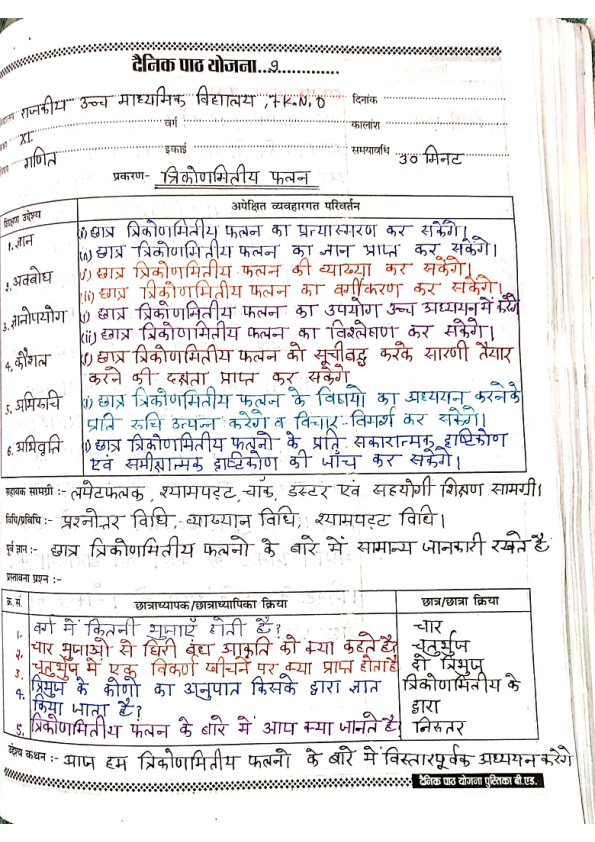 दैनिक पाठ योजना...9.............
राजकीय उच्च माध्यमिक विद्यालय, 7K.N.D दिनांक
XI वर्ग कालांश
गणित इकाई समयावधि 30 मिनट
प्रकरण- त्रिकोणमितीय फलन
शिक्षण उद्देश्य अपेक्षित व्यवहारगत परिवर्तन
1. ज्ञान (i) छात्र त्रिकोणमितीय फलन का प्रत्यास्मरण कर सकेंगे।
(ii) छात्र त्रिकोणमितीय फलन का ज्ञान प्राप्त कर सकेंगे।
2. अवबोध (i) छात्र त्रिकोणमितीय फलन की व्याख्या कर सकेंगे।
(ii) छात्र त्रिकोणमितीय फलन का वर्गीकरण कर सकेंगे।
3. ज्ञानोपयोग (i) छात्र त्रिकोणमितीय फलन का उपयोग उच्च अध्ययन में करेंगे
(ii) छात्र त्रिकोणमितीय फलन का विश्लेषण कर सकेंगे।
4. कौशल (i) छात्र त्रिकोणमितीय फलन को सूचीबद्ध करके सारणी तैयार
करने की दक्षता प्राप्त कर सकेंगे
5. अभिरुचि (i) छात्र त्रिकोणमितीय फलन के विषयो का अध्ययन करने के
प्रति रुचि उत्पन्न करेंगे व विचार-विमर्श कर सकेंगे।
6. अभिवृति (i) छात्र त्रिकोणमितीय फलनो के प्रति सकारात्मक दृष्टिकोण
एवं समीक्षात्मक दृष्टिकोण की जाँच कर सकेंगे।
सहायक सामग्री :- लपेटफलक, श्यामपट्ट, चॉक, डस्टर एवं सहयोगी शिक्षण सामग्री।
विधि/प्रविधि :- प्रश्नोतर विधि, व्याख्यान विधि, श्यामपट्ट विधि।
पूर्व ज्ञान :- छात्र त्रिकोणमितीय फलनो के बारे में सामान्य जानकारी रखते है
प्रस्तावना प्रश्न :-
क्र. सं. छात्राध्यापक/छात्राध्यापिका क्रिया छात्र/छात्रा क्रिया
1. वर्ग में कितनी भुजाएँ होती है? चार
2. चार भुजाओ से घिरी बंध आकृति को क्या कहते है? चतुर्भुज
3. चतुर्भुज में एक विकर्ण खीचने पर क्या प्राप्त होता है दो त्रिभुज
4. त्रिभुज के कोणो का अनुपात किसके द्वारा ज्ञात त्रिकोणमितीय के
किया जाता है? द्वारा
5. त्रिकोणमितीय फलन के बारे में आप क्या जानते है? निरुतर
उद्देश्य कथन :- आज हम त्रिकोणमितीय फलनो के बारे में विस्तारपूर्वक अध्ययन करेंगे
दैनिक पाठ योजना पुस्तिका बी.एड.